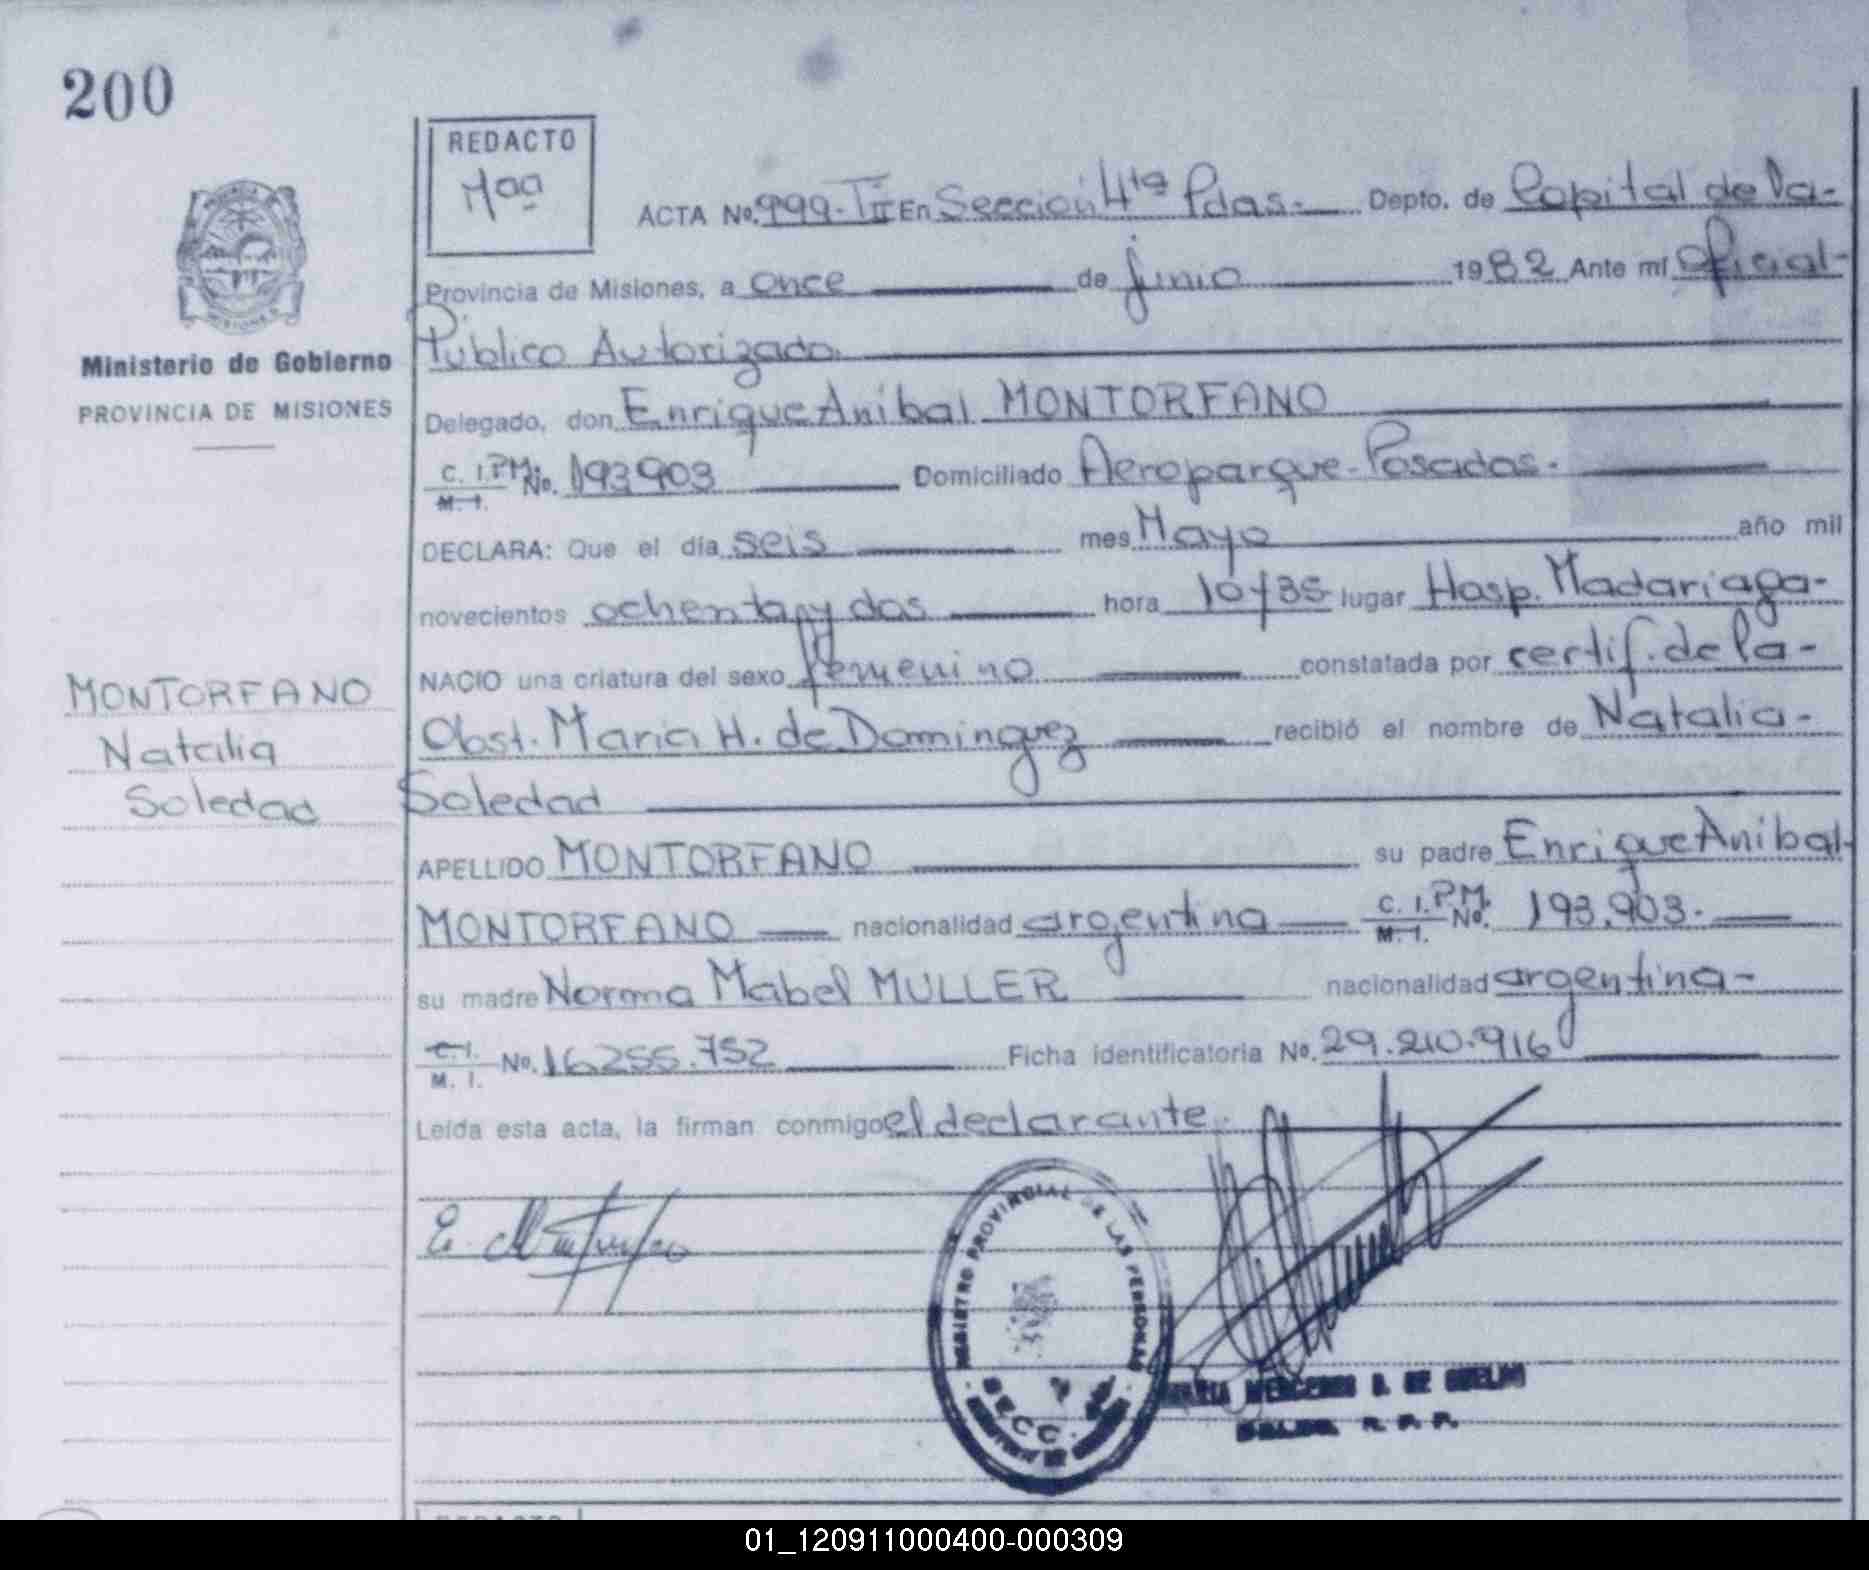 200
REDACTO
Maa
ACTA No. 999-TII En Sección 4ta Pdas.- Depto. de Capital de la-
Provincia de Misiones, a once de junio 1982 Ante mí Oficial-
Público Autorizado.
Ministerio de Gobierno
PROVINCIA DE MISIONES
Delegado, don Enrique Aníbal MONTORFANO
C. I. P.M. M. I. No. 193903 Domiciliado Aeroparque-Posadas.
DECLARA: Que el día seis mes Mayo año mil
novecientos ochenta y dos hora 10y35 lugar Hosp. Madariaga-
NACIO una criatura del sexo femenino constatada por certif. de la-
MONTORFANO
Natalia
Soledad
Obst. Maria H. de Dominguez recibió el nombre de Natalia-
Soledad
APELLIDO MONTORFANO su padre Enrique Anibal-
MONTORFANO nacionalidad argentina C. I. P.M. M. I. No. 193.903.
su madre Norma Mabel MULLER nacionalidad argentina-
C. I. M. I. No. 16255.752 Ficha identificatoria No. 29.210.916
Leída esta acta, la firman conmigo el declarante.
REGISTRO PROVINCIAL DE LAS PERSONAS
SECC.
MISIONES
01_120911000400-000309